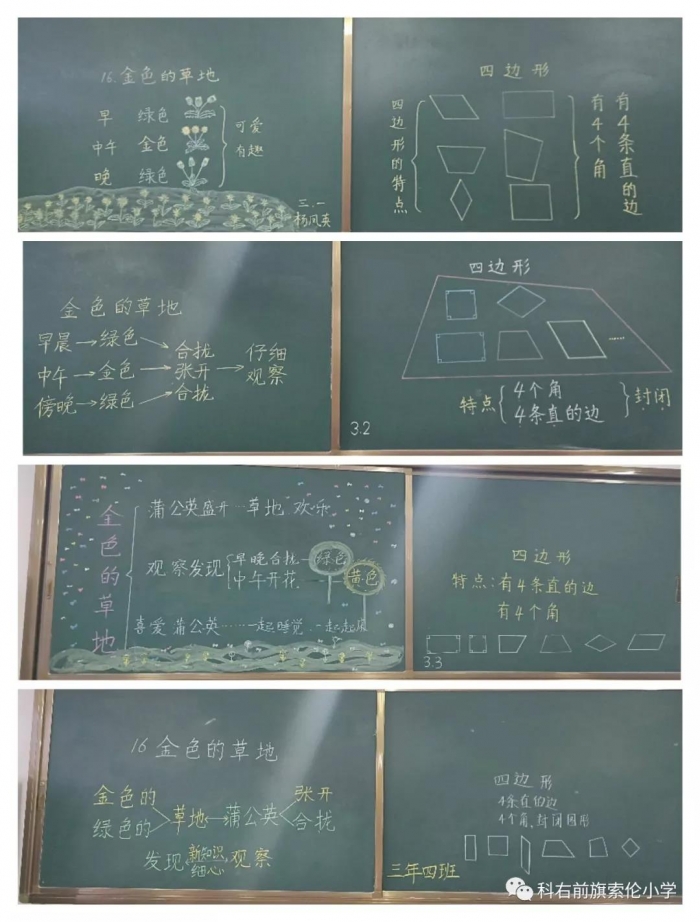 16.金色的草地
早 绿色
中午 金色
晚 绿色
可爱
有趣
三.一
杨凤英
四边形
四边形的特点
有4个角
有4条直的边
金色的草地
早晨→绿色→合拢
中午→金色→张开→仔细观察
傍晚→绿色→合拢
四边形
……
特点
4个角
4条直的边
封闭
3.2
金色的草地
蒲公英盛开…草地 欢乐
观察发现
早晚合拢—绿色
中午开花—黄色
喜爱蒲公英……一起睡觉…一起起床
四边形
特点:有4条直的边
有4个角
3.3
16 金色的草地
金色的
绿色的
草地—蒲公英
张开
合拢
发现 新知识 观察
细心
四边形
4条直的边
4个角,封闭图形
三年四班
科右前旗索伦小学